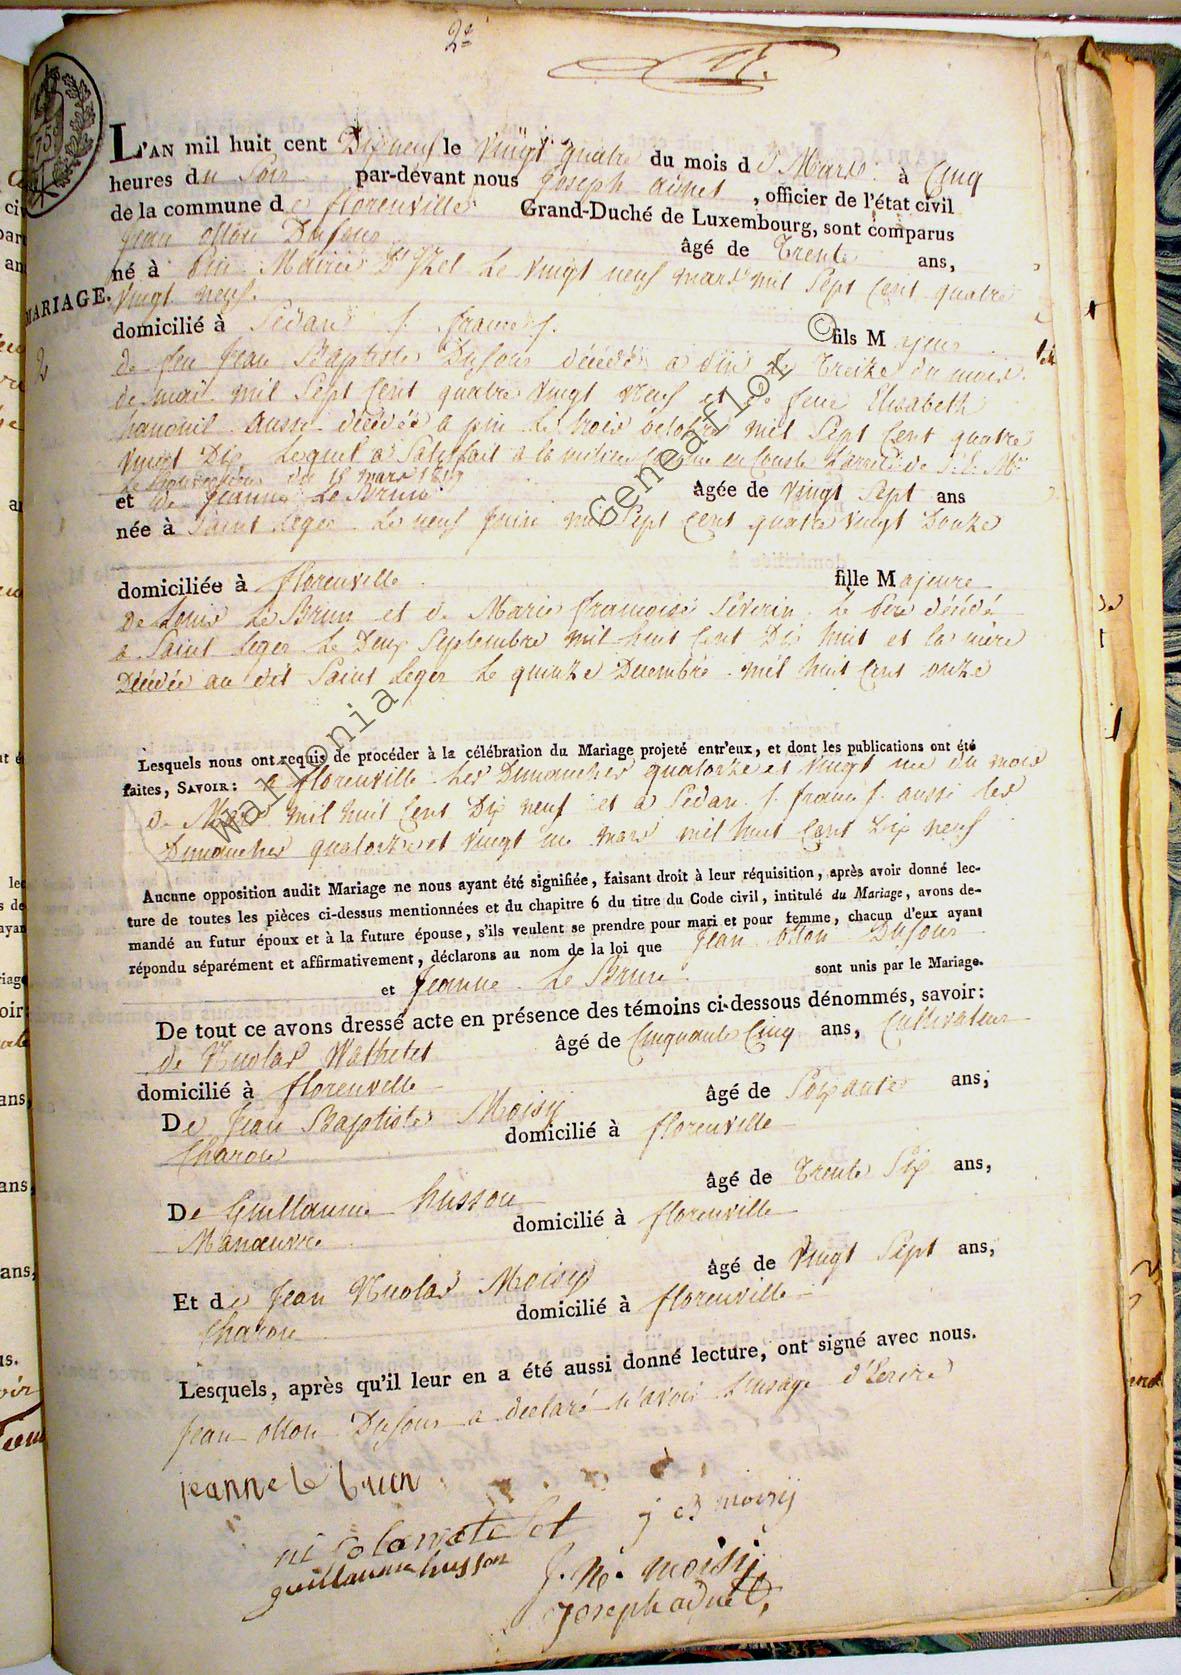 2e
L'AN mil huit cent Dix neuf le Vingt quatre du mois de Mars à Cinq
heures du Soir par-devant nous Joseph adnet, officier de l'état civil
de la commune de florenville Grand-Duché de Luxembourg, sont comparus
Jean Dufour âgé de Trente ans,
né à pin Mairie D'Izel Le Vingt neuf mars mil Sept Cent quatre
Vingt neuf.
MARIAGE.
domicilié à Sedan f. france f. fils Majeur
2
de feu Jean Baptiste Dufour décédé a pin Le Treize du mois
de mai mil Sept Cent quatre Vingt Neuf et de feue Elisabeth
hanonil aussi décédée a pin Le trois octobre mil Sept Cent quatre
Vingt Dix Lequel a Satisfait a la milice Comme en Conste L'arrêté de
du 18 mars 1819
et de Jeanne Le Brun agée de Vingt Sept ans
née à Saint Leger Le neuf Juin mil Sept Cent quatre Vingt Douze
domiciliée à florenville fille Majeure
De Louis Le Brun et de Marie françoise Séverin, Le Père décédé
a Saint Leger Le Deux Septembre mil huit Cent Dix huit et la mère
Décédée au dit Saint Leger Le quinze Decembre mil huit Cent onze
Lesquels nous ont requis de procéder à la célébration du Mariage projeté entr'eux, et dont les publications ont été
faites, SAVOIR: a florenville Les Dimanches quatorze et Vingt un du mois
de Mars mil huit Cent Dix neuf et a Sedan f. france f. aussi les
Dimanches quatorze et Vingt un mars mil huit Cent Dix neuf
Aucune opposition audit Mariage ne nous ayant été signifiée, faisant droit à leur réquisition, après avoir donné lec-
ture de toutes les pièces ci-dessus mentionnées et du chapitre 6 du titre du Code civil, intitulé du Mariage, avons de-
mandé au futur époux et à la future épouse, s'ils veulent se prendre pour mari et pour femme, chacun d'eux ayant
répondu séparément et affirmativement, déclarons au nom de la loi que Jean Dufour
et Jeanne Le Brun sont unis par le Mariage.
De tout ce avons dressé acte en présence des témoins ci-dessous dénommés, savoir:
de Nicolas Wathelet âgé de Cinquante Cinq ans, Cultivateur
domicilié à florenville
De Jean Baptiste Moisij âgé de Soixante ans,
Charon domicilié à florenville
De Guillaume husson âgé de Trente Six ans,
Manœuvre domicilié à florenville
Et de Jean Nicolas Moisij âgé de Vingt Sept ans,
Charon domicilié à florenville
Lesquels, après qu'il leur en a été aussi donné lecture, ont signé avec nous.
Jean Dufour a declaré n'avoir L'usage d'Ecrire
jeanne le brun
j B moisij
guillaume husson
J. N. moisij
Joseph adnet
wallonia © Geneaflor ©